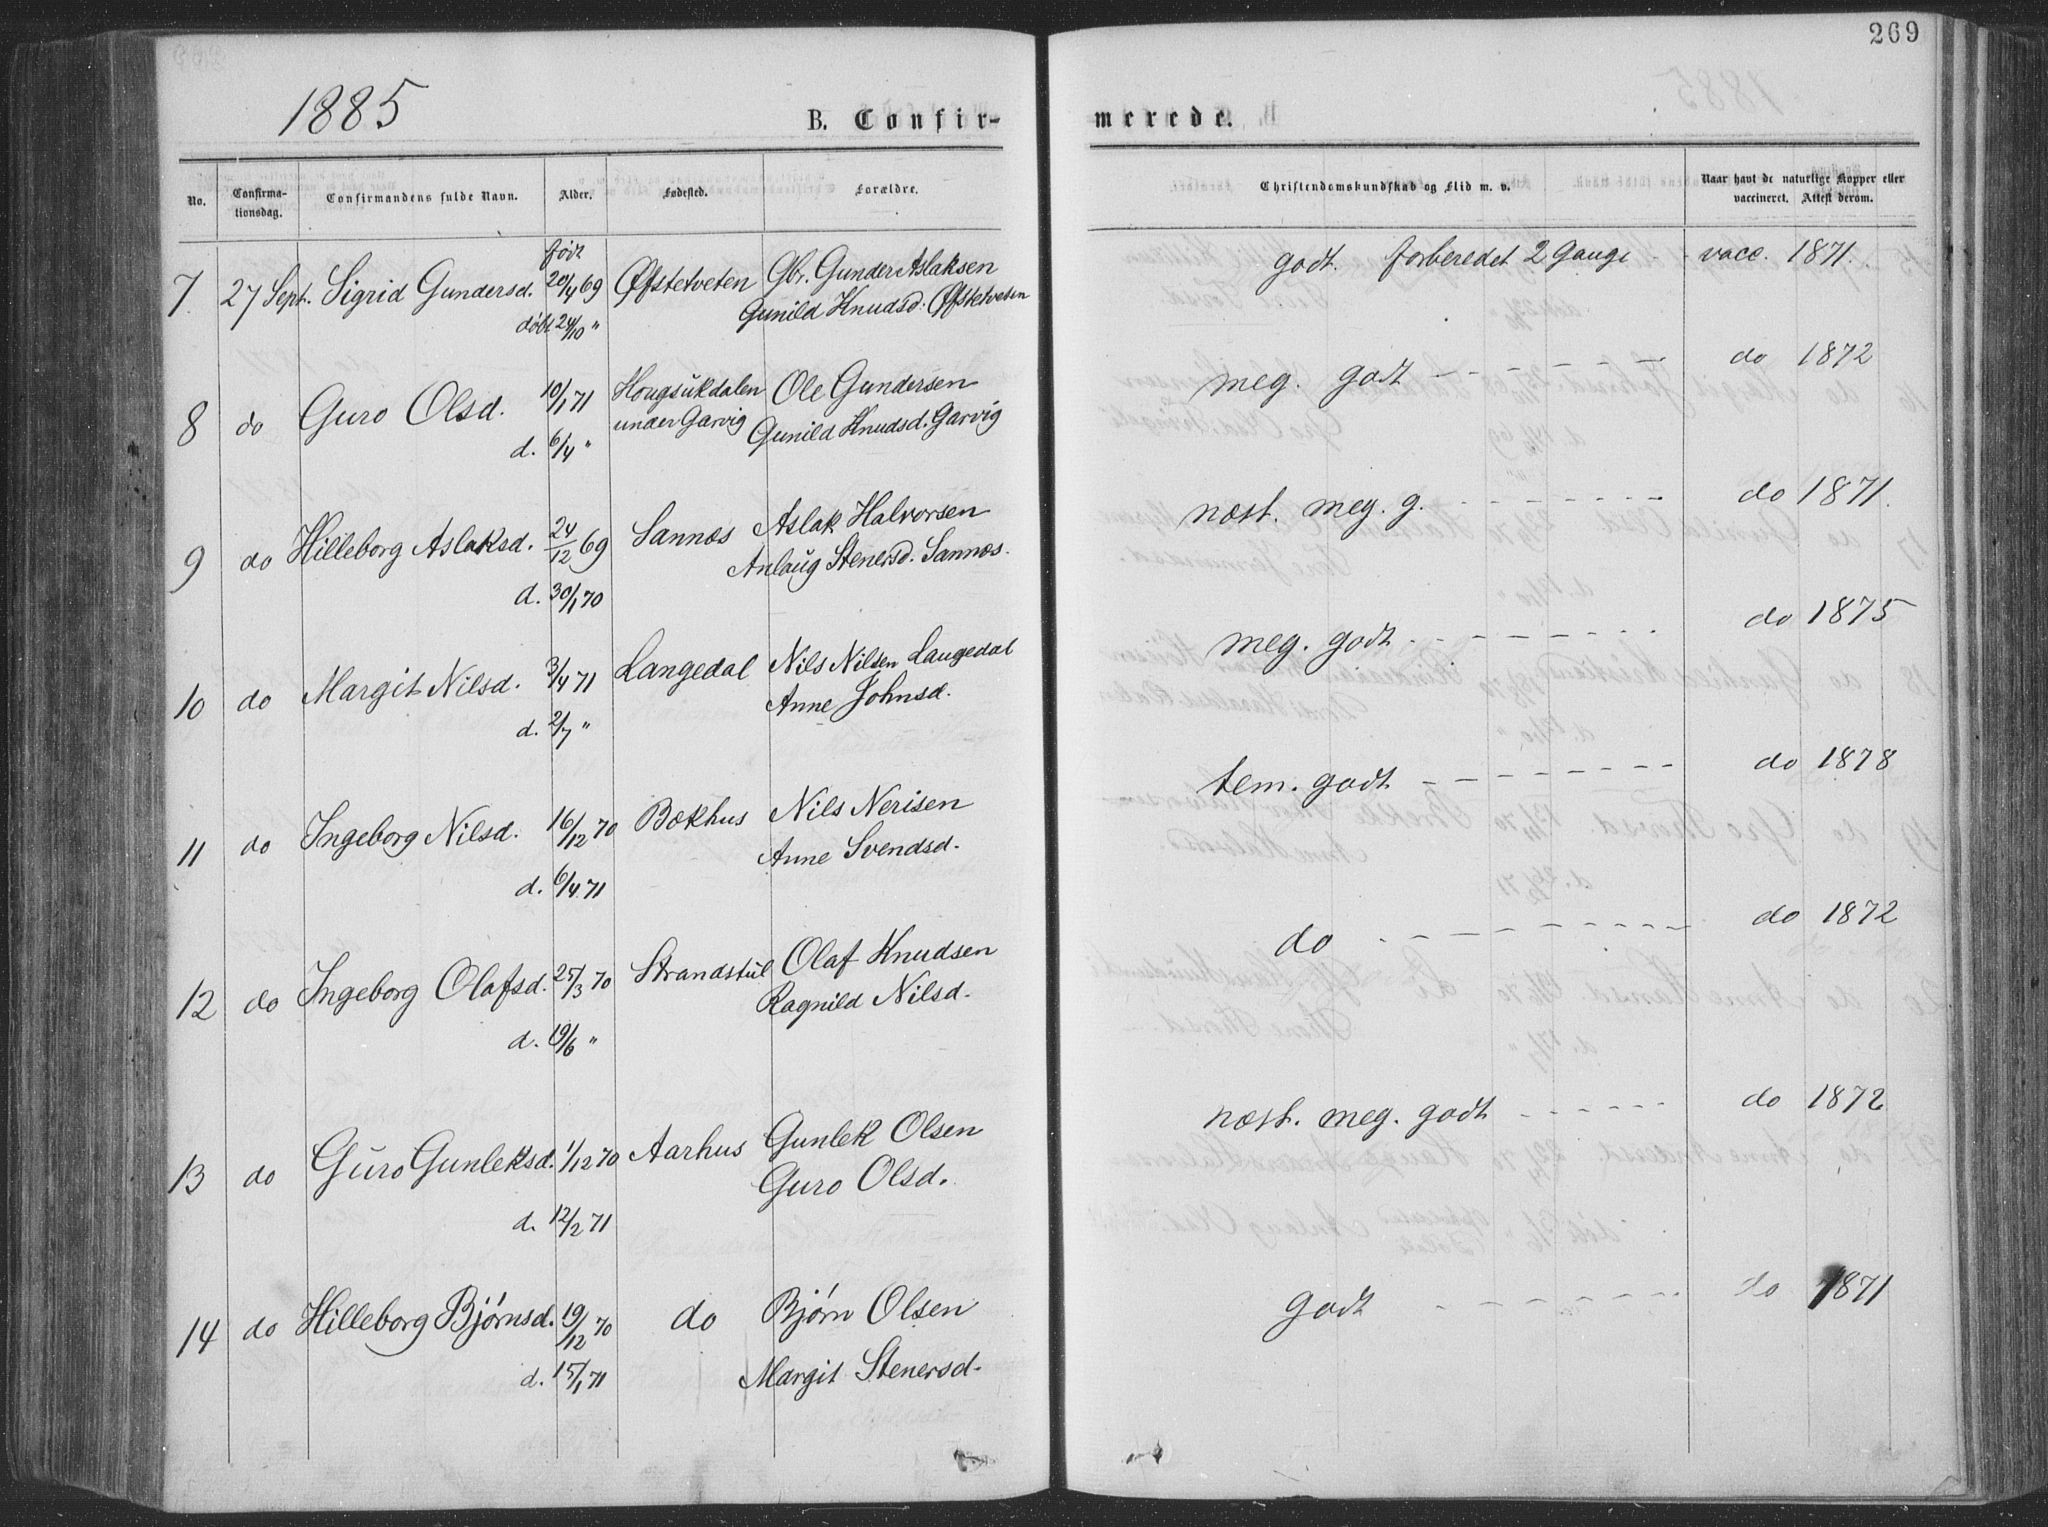 269
1885
B. Confir-
merede.
No.
Confirma-
tionsdag.
Confirmandens fulde Navn.
Alder.
Fødested.
Forældre.
Christendomskundskab og Flid m. v.
Naar havt de naturlige Kopper eller
vaccineret. Attest derom.
født
7. 27 Sept. Sigrid Gundersd. 20/4 69 Øfstetveten Gbr. Gunder Aslaksen godt. forberedet 2 Gange vacc. 1871.
døbt 24/10 " Gunild Knudsd. Øfstetveten
8 do Guro Olsd. 10/1 71 Hougsukdalen Ole Gundersen meg. godt do 1872
under Garvig Gunild Knudsd. Garvig
d. 6/4 "
9 do Hilleborg Aslaksd. 24/12 69 Sannes Aslak Halvorsen næst. meg. g. do 1871.
Anlaug Stenersd. Sannes.
d. 30/1 70
10 do Margit Nilsd. 3/4 71 Langedal Nils Nilsen Langedal meg. godt do 1875
Anne Johnsd.
d. 2/7 "
11 do Ingeborg Nilsd. 16/12 70 Bækhus Nils Nerisen tem. godt do 1878
Anne Svendsd.
d. 6/4 71
12 do Ingeborg Olafsd. 25/3 70 Strandstul Olaf Knudsen do do 1872
Ragnild Nilsd.
d. 19/6 "
13 do Guro Gunleksd. 1/12 70 Aarhus Gunlek Olsen næst. meg. godt do 1872
Guro Olsd.
d. 12/2 71
14 do Hilleborg Bjørnsd. 19/12 70 do Bjørn Olsen godt do 1871
d. 15/1 71 Margit Stenersd.